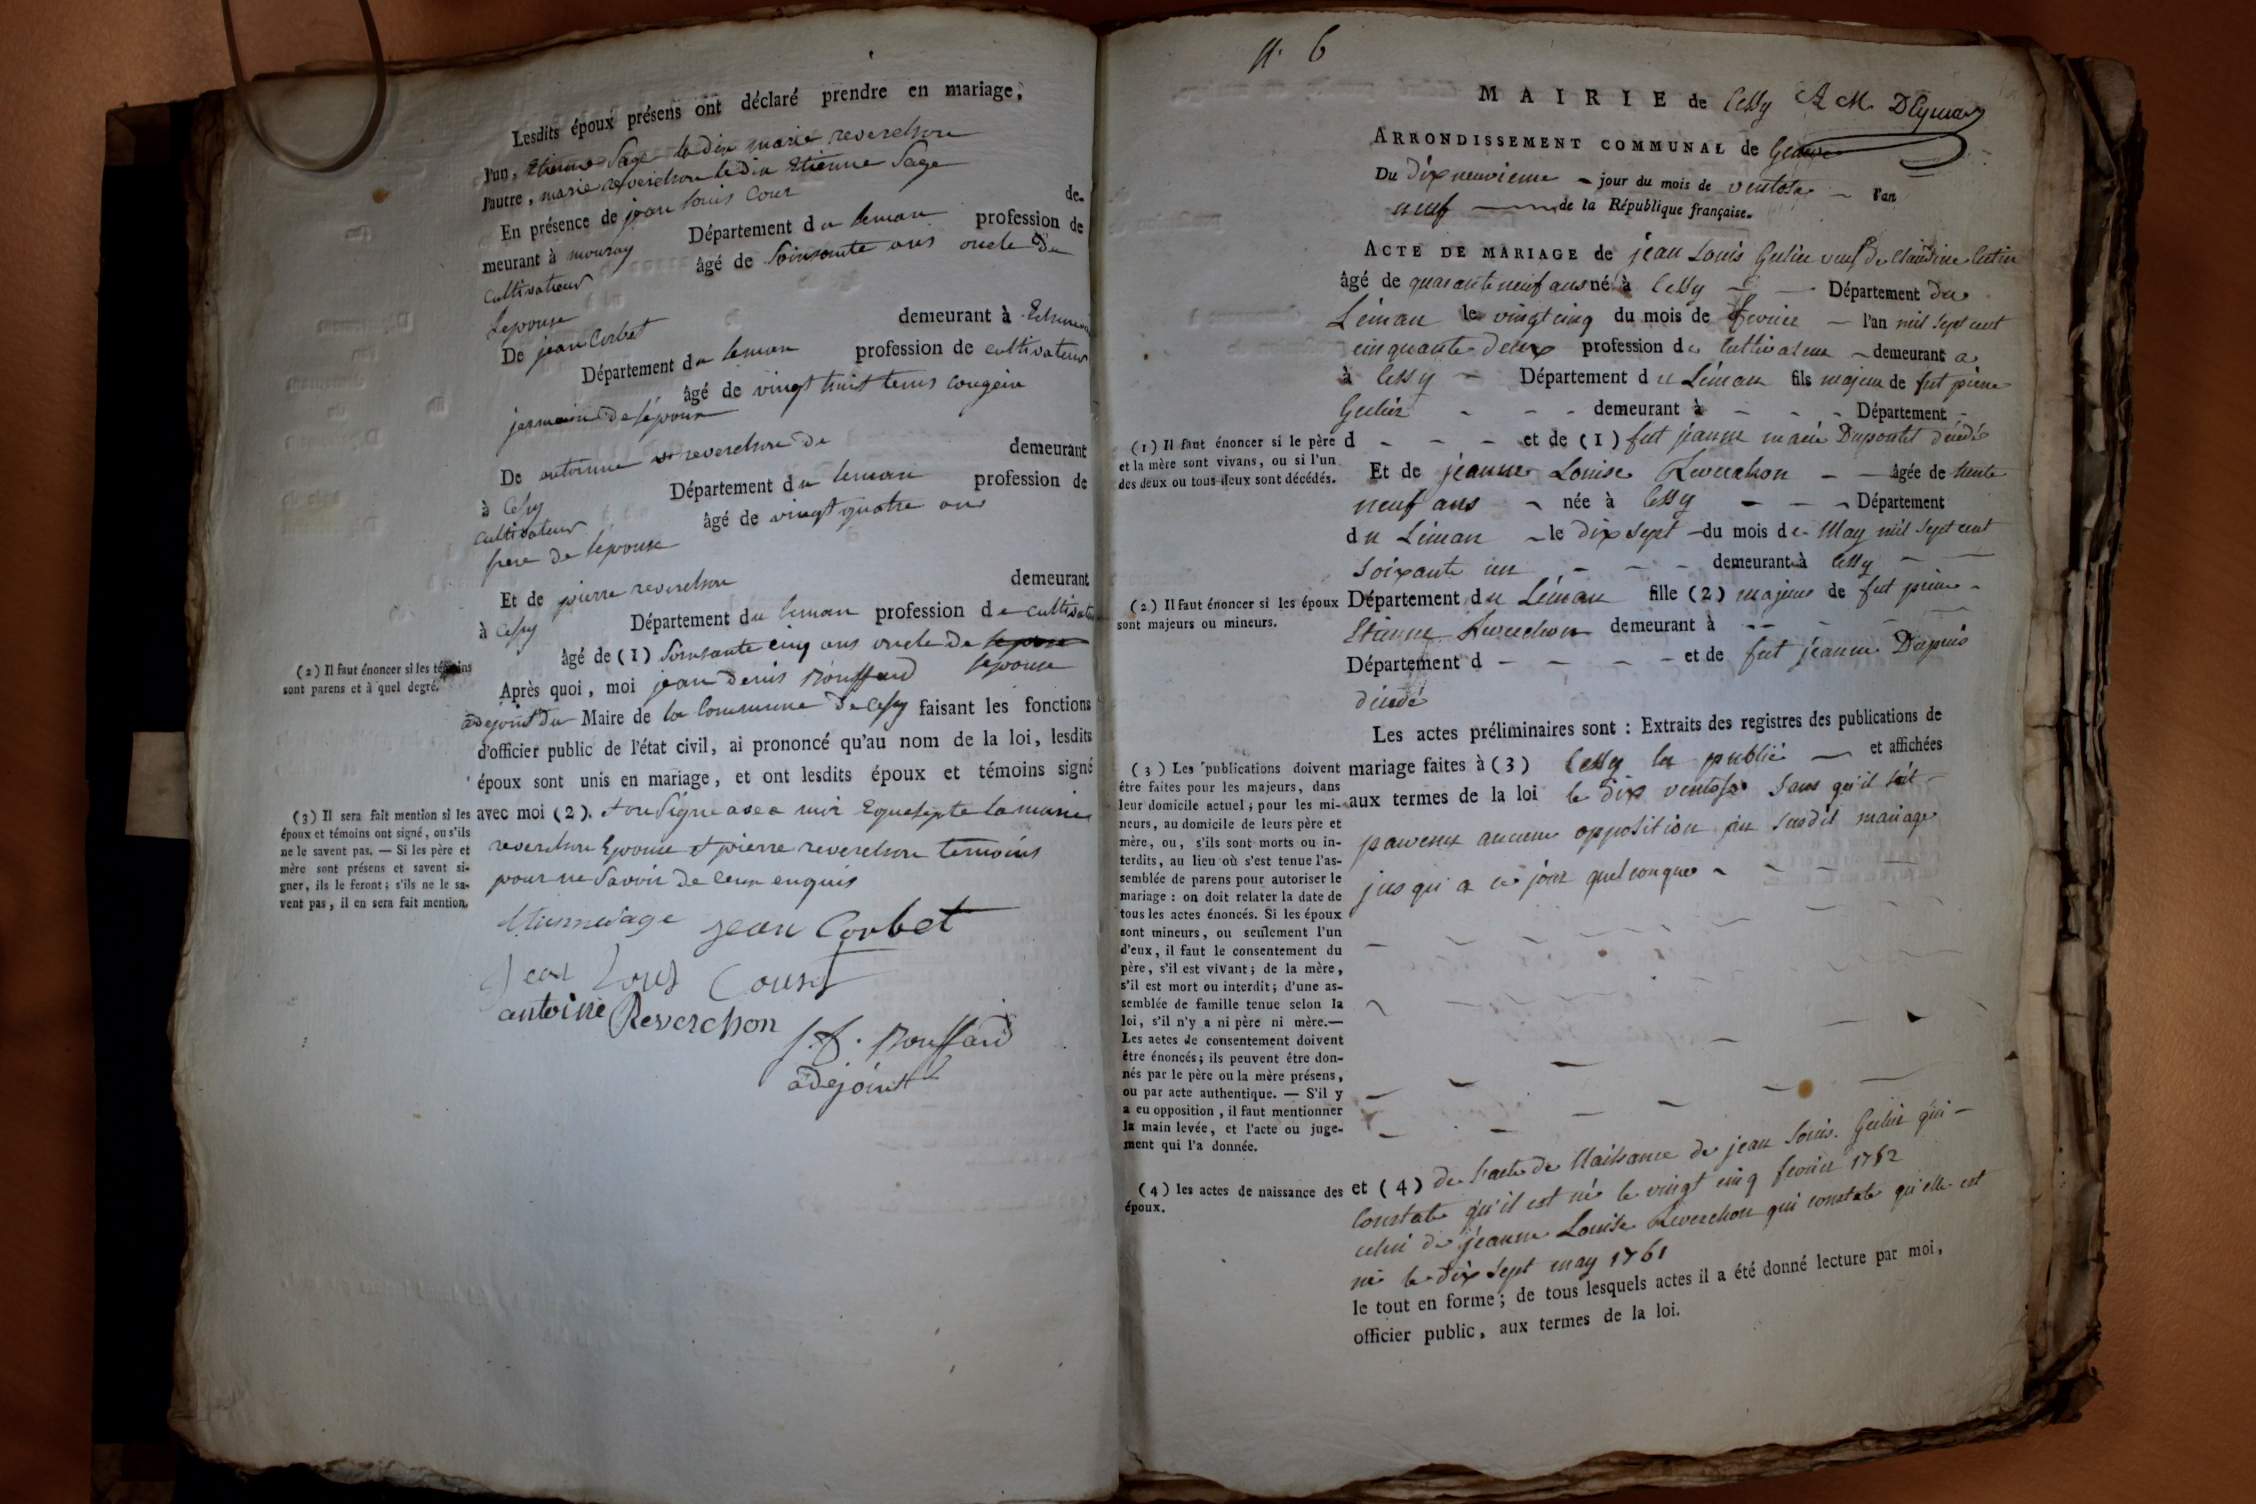 Lesdits époux présens ont déclaré prendre en mariage,
l'un, Etienne Sage la dite marie reverchon
l'autre, marie reverchon ledit Etienne Sage
En présence de jean louis Cour de-
meurant à mouray Département du leman profession de
cultivateur âgé de Soixsante ans oncle de
Lepouse
De jean Corbet demeurant à
Département du leman profession de cultivateur
âgé de vingt huit
jermain de lépoux
De antoinne reverchon de demeurant
à Cessy Département du leman profession de
cultivateur âgé de vingt quatre ans
frere de lepouse
Et de pierre reverchon demeurant
à Cessy Département du leman profession de
âgé de (1) Soixsante cinq ans oncle de
lepouse
(2) Il faut énoncer si les témoins
sont parens et à quel degré.
Après quoi, moi jean denis Rouffard
adejoint du Maire de la Commune de Cessy faisant les fonctions
d'officier public de l'état civil, ai prononcé qu'au nom de la loi, lesdits
époux sont unis en mariage, et ont lesdits époux et témoins signé
avec moi (2).
reverchon Epouse et pierre reverchon temoins
pour ne Savoir de ceux enquis
(3) Il sera fait mention si les
époux et témoins ont signé, ou s'ils
ne le savent pas. — Si les père et
mère sont présens et savent si-
gner, ils le feront; s'ils ne le sa-
vent pas, il en sera fait mention.
jean Corbet
jean Louis
antoine Reverchon
Rouffard
adejoint
N. 6
MAIRIE de Cessy
ARRONDISSEMENT COMMUNAL de
Du dixneuvieme - jour du mois de ventose - l'an
neuf — de la République française.
ACTE DE MARIAGE de jean Louis veuf de Claudine
âgé de quarante neuf ans né à Cessy - - Département du
Léman le vingt cinq du mois de fevrier - l'an mil sept cent
cinquante deux profession de Cultivateur - demeurant a
à Cessy - Département du Léman fils majeur de fut pierre
- - - demeurant à - - - Département -
d - - - et de (1) fut jeanne marie Dupontet décédé
(1) Il faut énoncer si le père
et la mère sont vivans, ou si l'un
des deux ou tous deux sont décédés.
Et de jeanne Louise Reverchon - - âgée de trente
neuf ans - née à Cessy - - - Département
du Léman - le dix sept - du mois de May mil sept cent
soixante un - - - demeurant à Cessy - -
Département du Léman fille (2) majeure de fut pierre -
Etienne Reverchon demeurant à - - - -
Département d - - - - et de fut jeanne Dupuis
décédé
(2) Il faut énoncer si les époux
sont majeurs ou mineurs.
Les actes préliminaires sont : Extraits des registres des publications de
mariage faites à (3) Cessy la publié — et affichées
aux termes de la loi le dix ventose Sans qu'il soit -
parvenu aucune opposition au susdit mariage
jusqu'a ce jour quelconque - - - -
(3) Les publications doivent
être faites pour les majeurs, dans
leur domicile actuel; pour les mi-
neurs, au domicile de leurs père et
mère, ou, s'ils sont morts ou in-
terdits, au lieu où s'est tenue l'as-
semblée de parens pour autoriser le
mariage : on doit relater la date de
tous les actes énoncés. Si les époux
sont mineurs, ou seulement l'un
d'eux, il faut le consentement du
père, s'il est vivant; de la mère,
s'il est mort ou interdit; d'une as-
semblée de famille tenue selon la
loi, s'il n'y a ni père ni mère.—
Les actes de consentement doivent
être énoncés; ils peuvent être don-
nés par le père ou la mère présens,
ou par acte authentique. — S'il y
a eu opposition, il faut mentionner
la main levée, et l'acte ou juge-
ment qui l'a donnée.
(4) les actes de naissance des
époux.
et (4) de l'acte de Naissance de jean Louis qui -
Constate qu'il est né le vingt cinq fevrier 1752
celui de jeanne Louise Reverchon qui constate qu'elle est
né le dix sept may 1761
le tout en forme; de tous lesquels actes il a été donné lecture par moi,
officier public, aux termes de la loi.